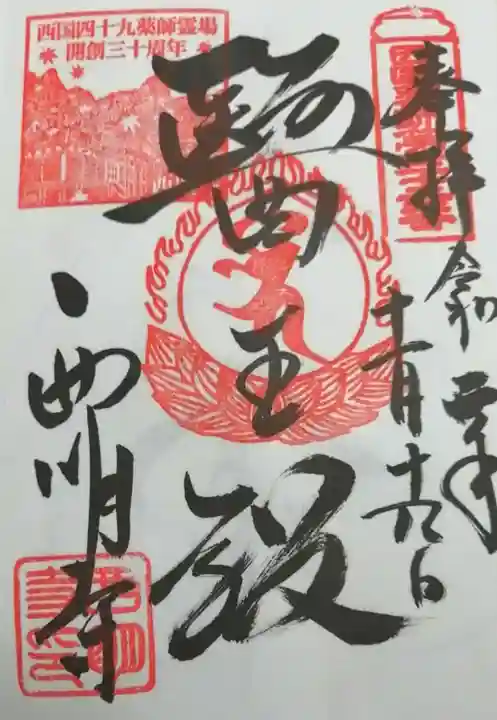 奉拝
令和二年
十一月十九日
醫王殿
西明寺
西国四十九薬師霊場
開創三十周年